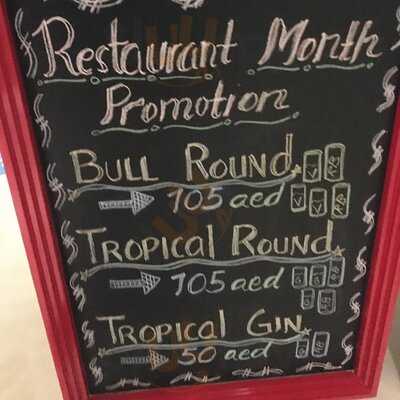 Restaurant Month
Promotion
BULL ROUND
105 aed
TROPICAL ROUND
105 aed
TROPICAL GIN
50 aed